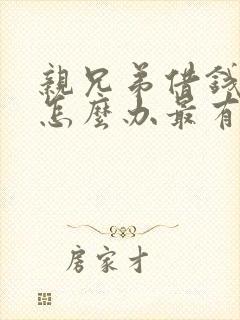 親兄弟借錢
怎麼办最有
房家才